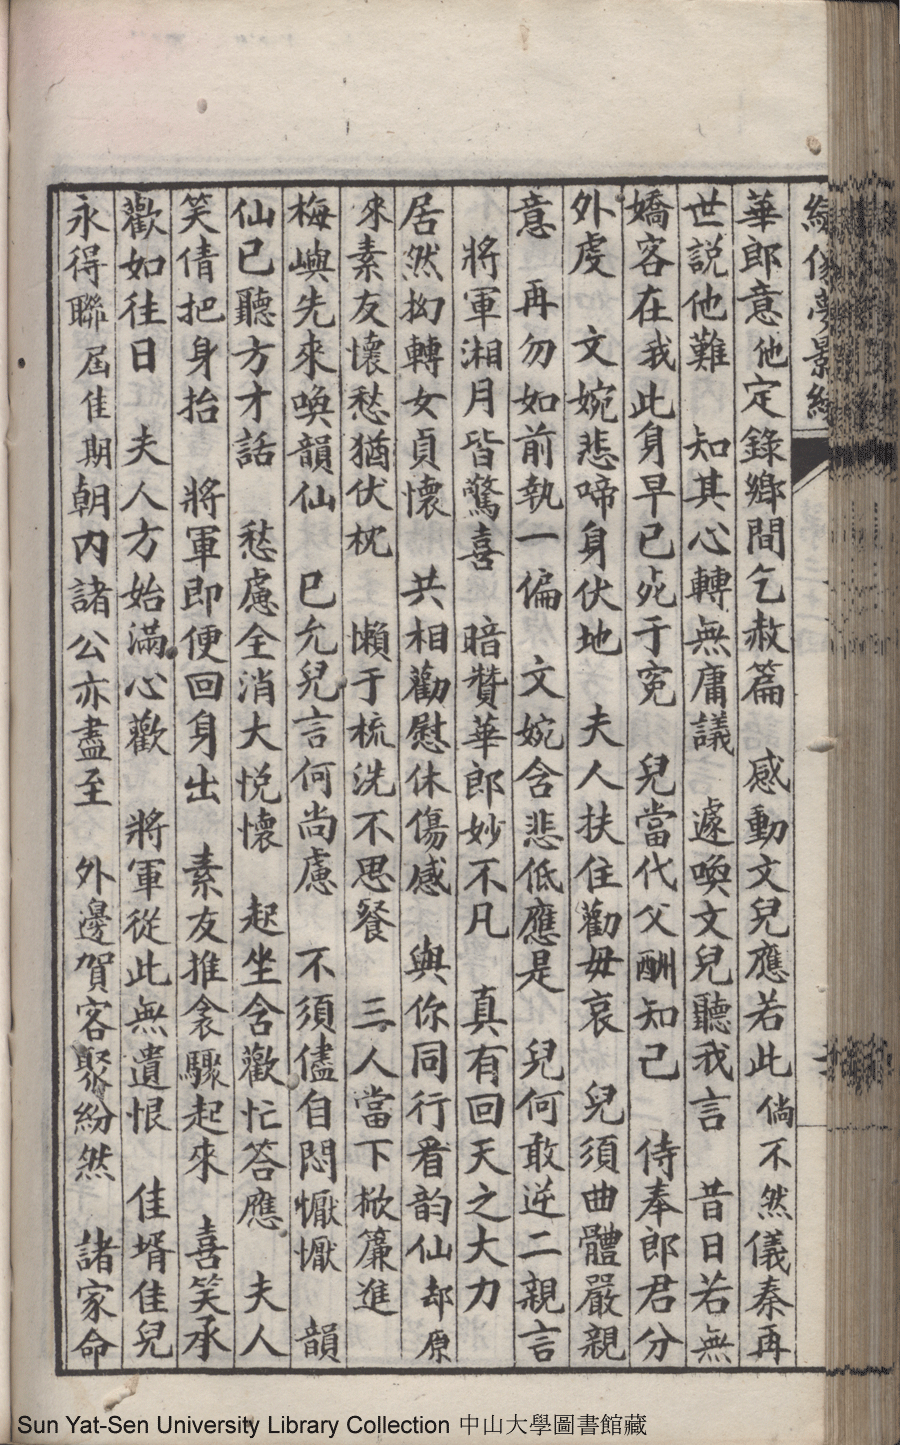 繡像夢影緣
華郎意他定錄鄉間乞赦篇　感動文兒應若此倘不然儀秦再
世説他難　知其心轉無庸議　遽喚文兒聽我言　昔日若無
嬌客在我此身早已死于寃　兒當代父酬知己　侍奉郎君分
外虔　文婉悲啼身伏地　夫人扶住勸毋哀　兒須曲體嚴親
意　再勿如前執一偏　文婉含悲低應是　兒何敢逆二親言
將軍湘月皆驚喜　暗贊華郎妙不凡　真有回天之大力
居然拗轉女貞懷　共相勸慰休傷感　與你同行看韵仙却原
來素友懷愁猶伏枕　懶于梳洗不思餐　三人當下掀簾進
梅嶼先來喚韻仙　已允兒言何尚慮　不須儘自悶懨懨　韻
仙已聽方才話　愁慮全消大悅懷　起坐含歡忙答應　夫人
笑倩把身抬　將軍即便回身出　素友推衾驟起來　喜笑承
歡如往日　夫人方始滿心歡　將軍從此無遺恨　佳壻佳兒
永得聯屆佳期朝内諸公亦盡至　外邊賀客聚紛然　諸家命
Sun Yat-Sen University Library Collection 中山大學圖書館藏